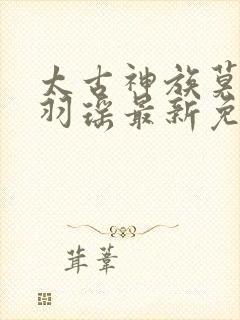 太古神族莫
羽瑶最新免
茸葦